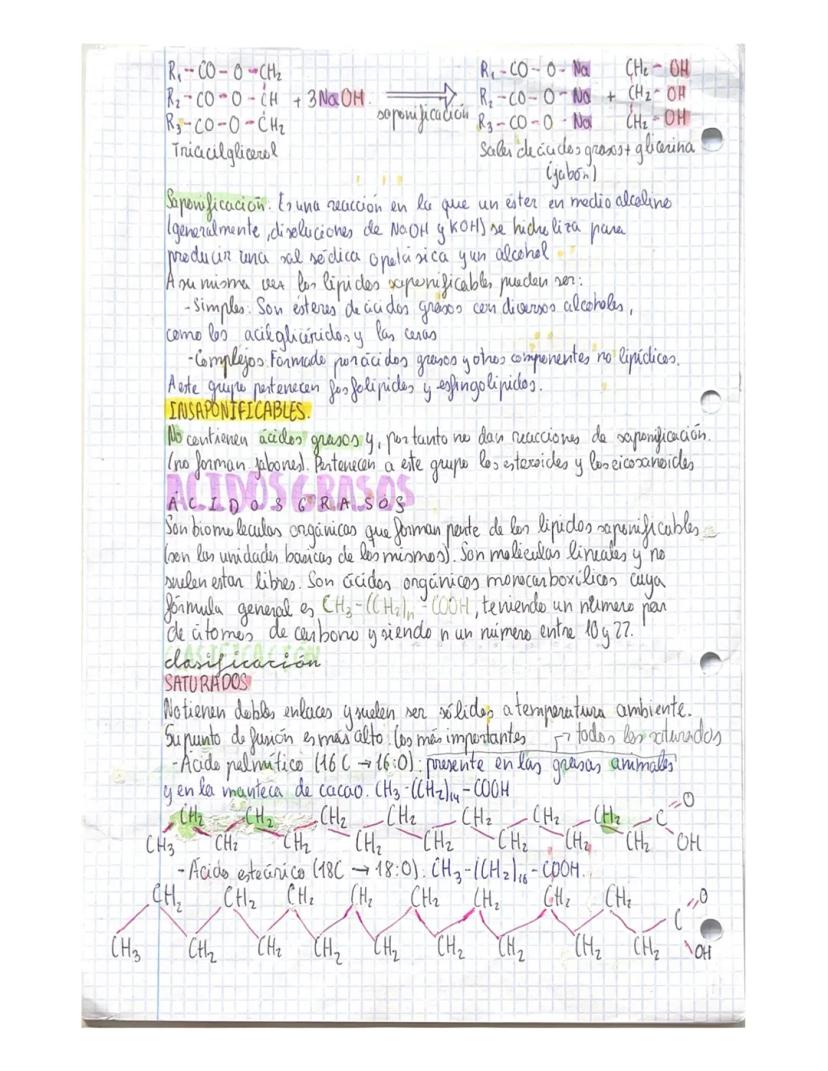 R₁-CO-O-CH₂ R₁-CO-O-Na CH₂-OH
R₂-CO-O-CH + 3NaOH saponificación R₂-CO-O-Na + CH₂-OH
R₃-CO-O-CH₂ R₃-CO-O-Na CH₂-OH
Triacilglicerol Sales de ácidos grasos + glicerina
(jabón)
Saponificación. Es una reacción en la que un éster en medio alcalino
(generalmente, disoluciones de NaOH y KOH) se hidroliza para
producir una sal sódica o potásica y un alcohol
A su misma vez los lípidos saponificables pueden ser:
- Simples: Son ésteres de ácidos grasos con diversos alcoholes,
como los acilglicéridos y las ceras
- Complejos: Formado por ácidos grasos y otros componentes no lipídicos.
A este grupo pertenecen fosfolípidos y esfingolípidos.
INSAPONIFICABLES.
No contienen ácidos grasos y, por tanto no dan reacciones de saponificación.
(no forman jabones). Pertenecen a este grupo los esteroides y los eicosanoides
ÁCIDOS GRASOS
Son biomoleculas orgánicas que forman parte de los lípidos saponificables
(son las unidades basicas de los mismos). Son moléculas lineales y no
suelen estar libres. Son ácidos orgánicos monocarboxílicos cuya
fórmula general es CH₃-(CH₂)ₙ-COOH, teniendo un número par
de átomos de carbono y siendo n un número entre 10 y 22.
clasificación
SATURADOS
No tienen dobles enlaces y suelen ser sólidos a temperatura ambiente.
Su punto de fusión es más alto. Los más importantes → todos los saturados
- Ácido palmítico (16C → 16:0): presente en las grasas animales
y en la manteca de cacao. CH₃-(CH₂)₁₄-COOH
CH₂ CH₂ CH₂ CH₂ CH₂ CH₂ CH₂ C O
CH₃ CH₂ CH₂ CH₂ CH₂ CH₂ CH₂ CH₂ OH
- Ácido esteárico (18C → 18:0). CH₃-(CH₂)₁₆-COOH.
CH₂ CH₂ CH₂ CH₂ CH₂ CH₂ CH₂ CH₂ C O
CH₃ CH₂ CH₂ CH₂ CH₂ CH₂ CH₂ CH₂ CH₂ OH